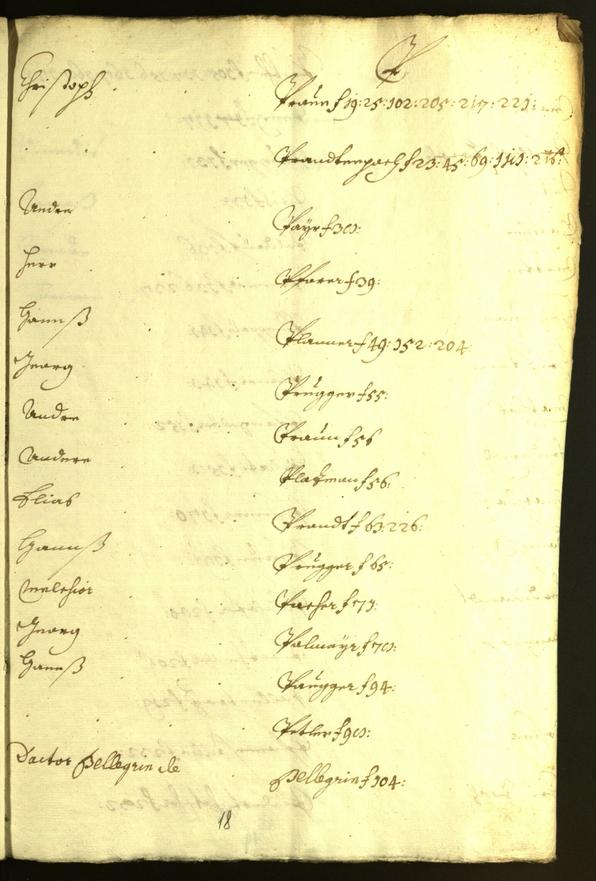 P
Christoph Praun f 19: 25: 102: 205: 217: 221:
Prandtenpach f 23: 45: 69: 141:
Andre Payr f
Herr Pfarer f 39:
Hannß Planner f 49: 152: 204
Georg Prugger f 55:
Andre Praun f 56
Andere Plazman f 56:
Elias Prandt f 63: 226:
Hannß Prugger f 65:
Melchior Pacher f 71:
Georg Palmayr f
Hannß Paugger f 94:
Petler f
Doctor Pellegrin de Pellegrin f 104:
18